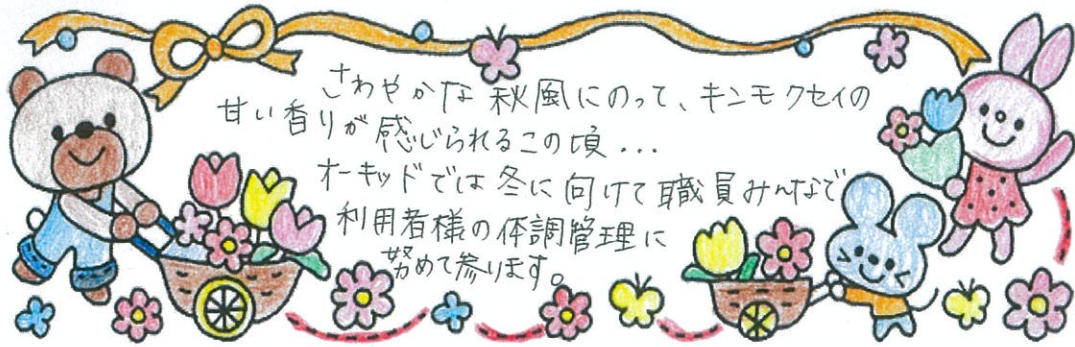 さわやかな秋風にのって、キンモクセイの
甘い香りが感じられるこの頃...
オーキッドでは冬に向けて職員みんなで
利用者様の体調管理に
努めて参ります。